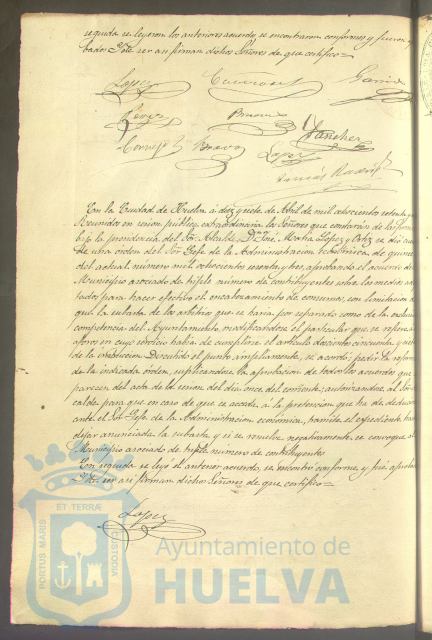 seguida se leyeron los anteriores acuerdos se encontraron conformes y fueron
bados. Y de ser asi firman dichos Señores de que certifico=
Lopez
Garcia
Perez
Bueno
Sanchez
Cornejo
Bravo
Lopez
Tomás
En la Ciudad de Huelva á diez y siete de Abril de mil ochocientos setenta y
Reunidos en sesion pública extraordinaria los Señores que constarán de las firmas
bajo la presidencia del Sor. Alcalde Dn. José Maria López y Ortiz se dió cuenta
de una orden del Sor. Gefe de la Administracion económica de quince
del actual número mil ochocientos sesenta y tres, aprobando el acuerdo del
Municipio asociado de triple número de contribuyentes sobre los medios
tados para hacer efectivo el encabezamiento de consumos, con
que la subasta de los arbitrios que se haria por separado como de la esclusiva
competencia del Ayuntamiento, modificándose el particular que se refiere
aforos en cuyo servicio habia de cumplirse el artículo doscientos cincuenta y
de la Instruccion. Discutido el punto ampliamente, se acordó: pedir la reforma
de la indicada orden, suplicándose la aprobacion de todos los acuerdos que
parecen del acta de la sesion del dia once del corriente; autorizandose al
calde para que en caso de que se acceda á la pretencion que ha de deducir
ante el Sor. Gefe de la Administracion económica, tramite el expediente hasta
dejar anunciada la subasta y si se resuelve negativamente se convoque al
Municipio asociado de triple número de contribuyentes
En seguida se leyó el anterior acuerdo, se encontró conforme y fué aprobado
Y de ser asi firman dichos Señores de que certifico=
Lopez
ET TERRÆ
PORTUS MARIS
CUSTODIA
Ayuntamiento de
HUELVA